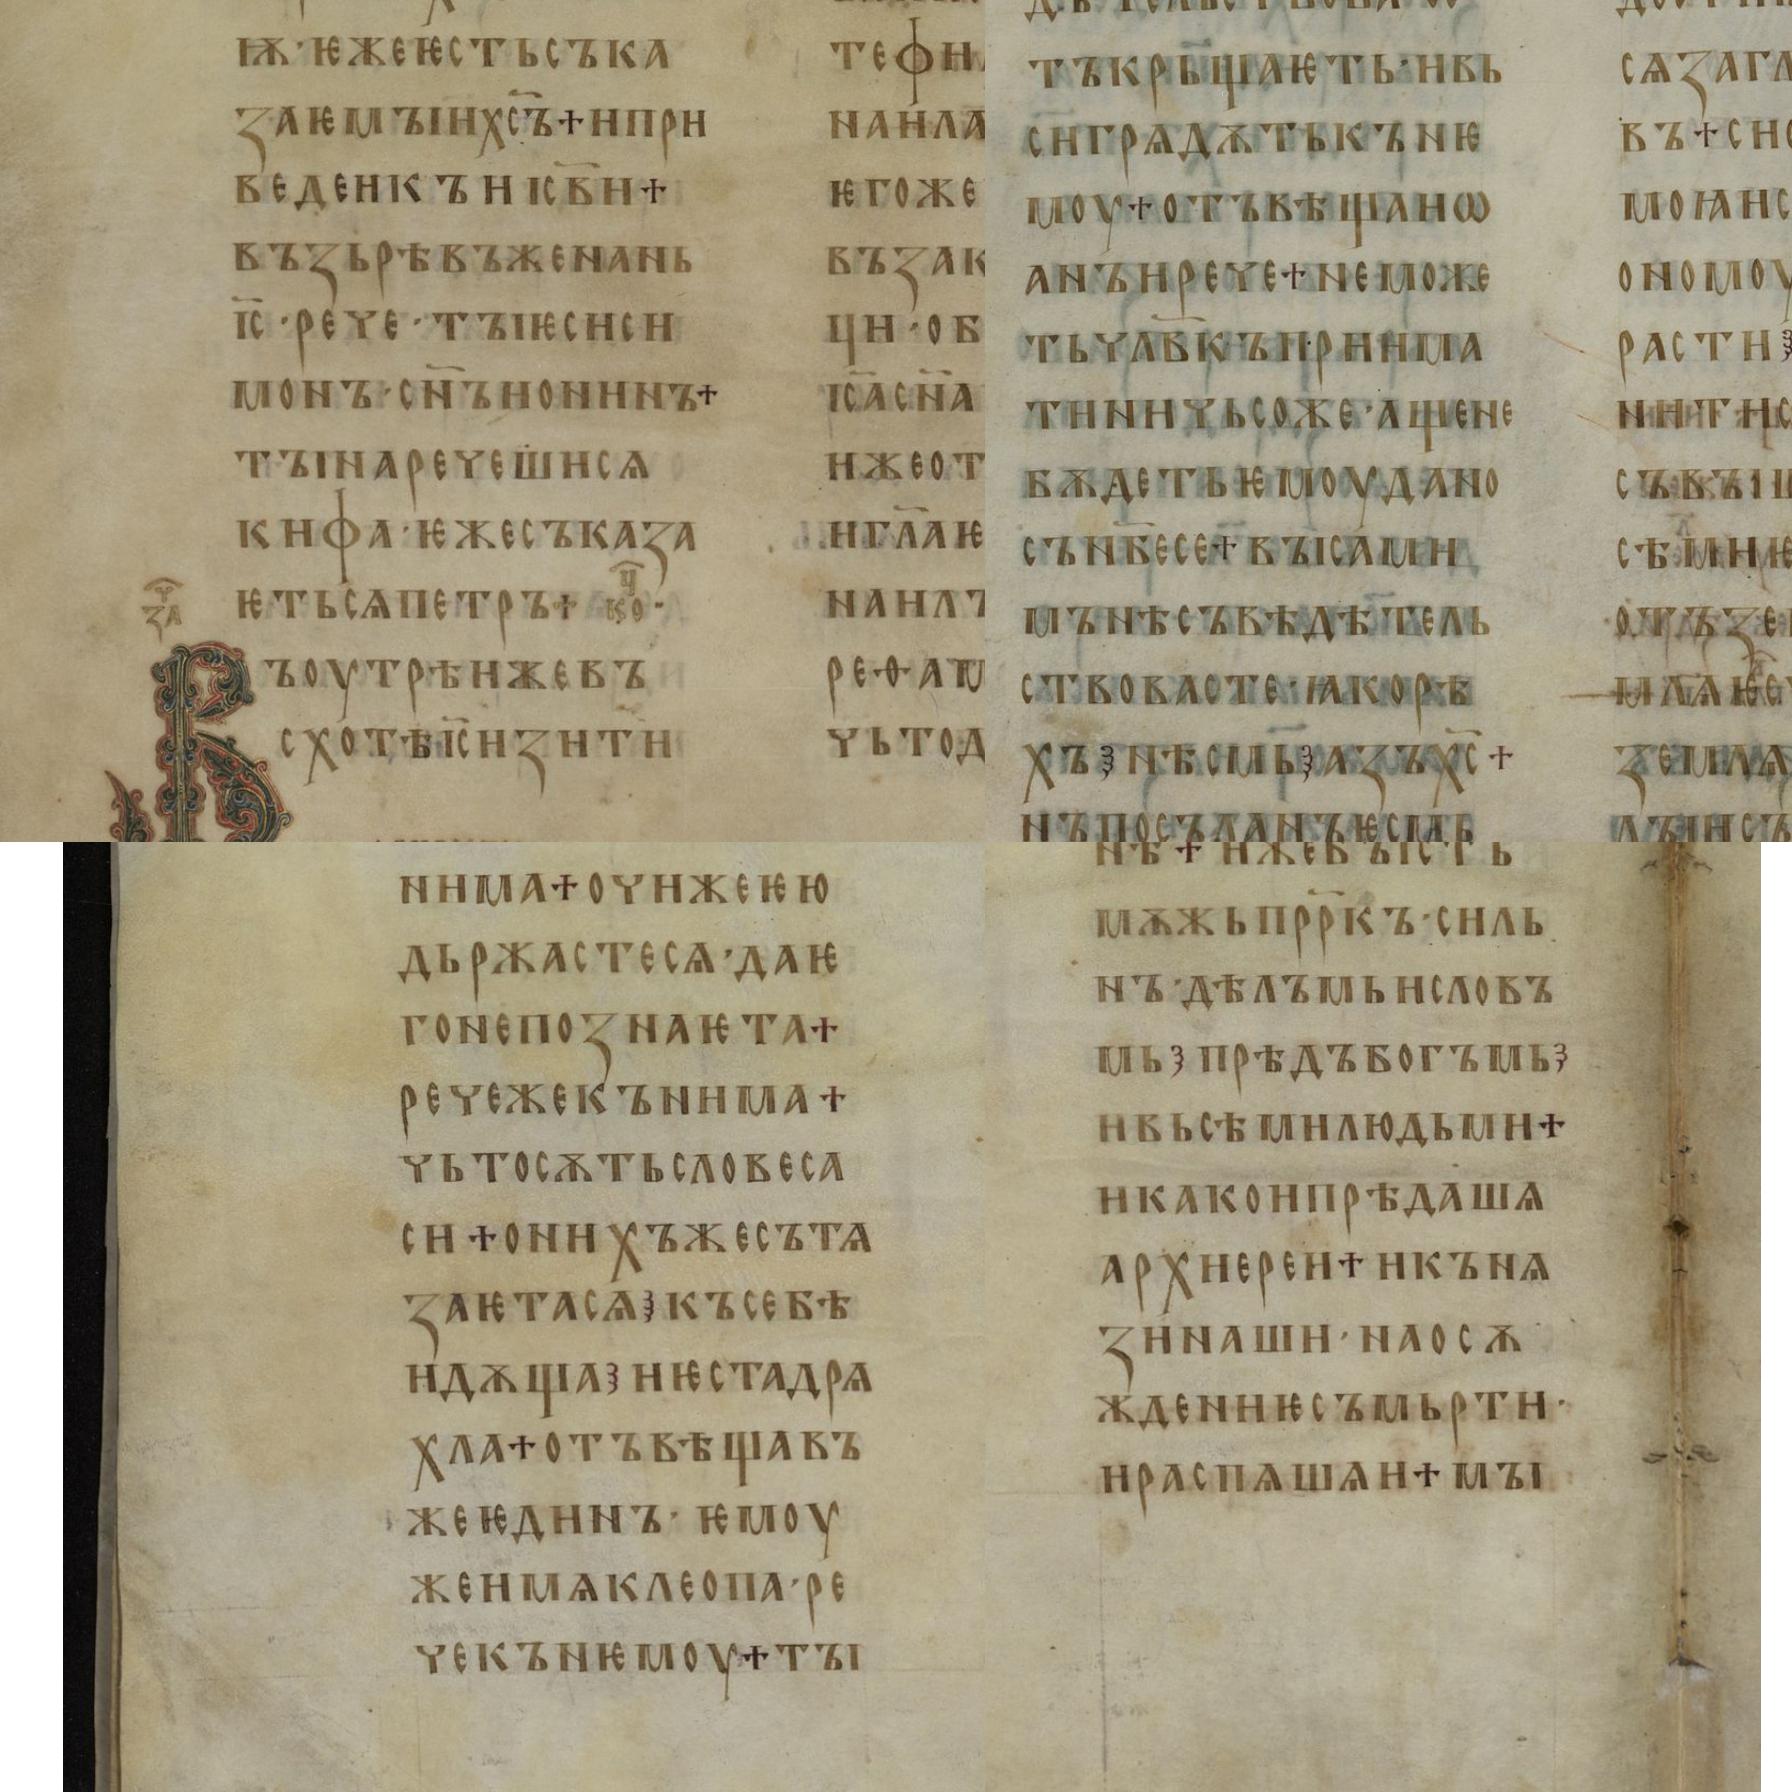 ѭ·ѥжеѥстьсъка
заѥмꙑихс҃ъ+ипри
веденкънісв҃и+
възьрѣвъженань
іс҃·рече·тꙑѥсиси
монъ·сн҃ъионинъ+
тꙑнаречешисѧ
кифа·ѥжесъказа
ѥтьсѧпетръ+ к҃о·
за҃
Въоутрѣижевъ
схотѣіс҃изити
тефи
наила
ѥгоже
възак
ци·об
іс҃асн҃а
ижеот
игл҃аѥ
наилъ
ре·ѳ·ам
чьтод
тъкрьщаѥть·ивь
сигрѧдѫтькънѥ
моу+отъвѣщаиѡ
анъирече+неможе
тьчлв҃къприима
тиничьсоже·ащене
бѫдетьѥмоудано
сън҃бесе+вꙑсами
мънѣсъвѣдѣтель
ствовасте·ꙗкорѣ
хъꙁнѣсмьꙁазъхс҃+
нъпосъланъѥсмь
сѧзагл
въ+сно
моꙗис
ономоу
расти
нитис
съвꙑш
сѣмню
отъзем
землѧ
лꙑисъ
нима+очижеѥю
дьржастесѧ·даѥ
гонепознаѥта+
речежекънима+
чьтосѫтьсловеса
си+онихъжесътѧ
заѥтасѧꙁксъебѣ
идѫщаꙁиѥстадрѧ
хла+отъвѣщавъ
жеѥдинъ·ѥмоу
жеимѧклеопа·ре
чекънѥмоу+тꙑ
нѣ+ижебꙑсть
мѫжьпрр҃къ·силь
нъ·дѣлъмьисловъ
мьꙁпрѣдъбогъмьꙁ
ивьсѣмилюдьми+
икаконпрѣдашѧ
архиереи+икънѧ
зинаши·наосѫ
ждениѥсъмьрти·
ираспѧшѧи+мꙑ